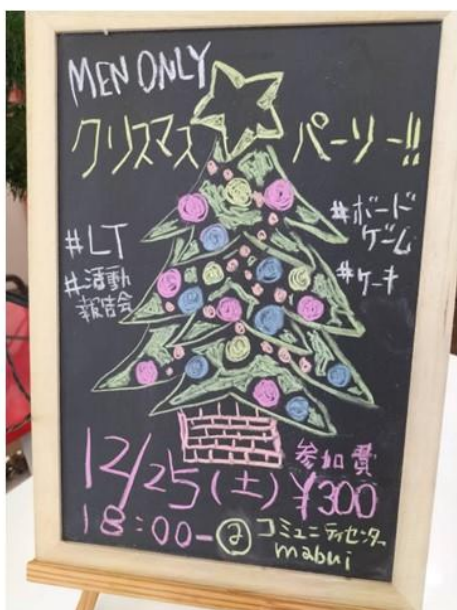 MEN ONLY
クリスマス パーリー!!
#LT
#活動
報告会
#ボード
ゲーム
#ケーキ
12/25(土)
参加費
¥300
18:00-@コミュニティセンター
mabui